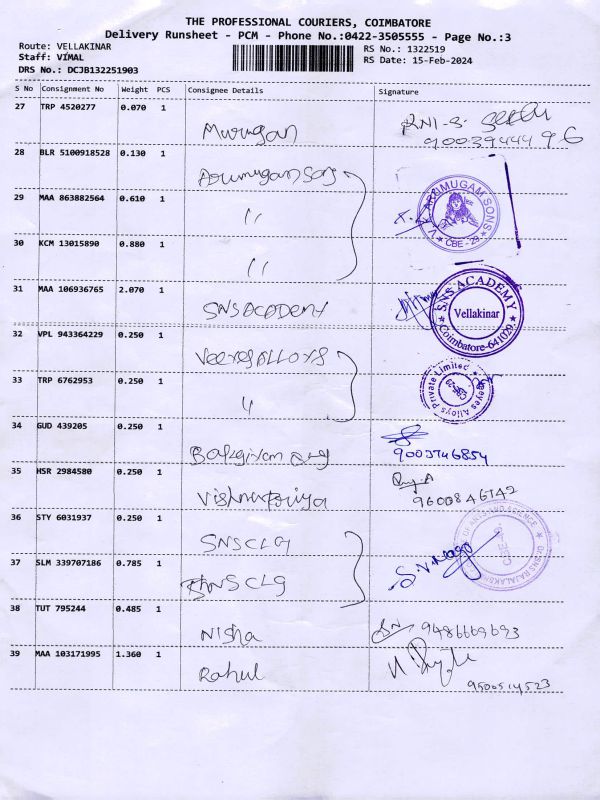 THE PROFESSIONAL COURIERS, COIMBATORE
Delivery Runsheet - PCM - Phone No.:0422-3505555 - Page No.:3
Route: VELLAKINAR
RS No.: 1322519
Staff: VIMAL
RS Date: 15-Feb-2024
DRS No.: DCJB132251903
S No Consignment No Weight PCS Consignee Details Signature
27 TRP 4520277 0.070 1
Murugan
28 BLR 5100918528 0.130 1
Arumugan Sons
29 MAA 863882564 0.610 1
"
V.ARUMUGAM SONS
CBE - 29
30 KCM 13015890 0.880 1
"
31 MAA 106936765 2.070 1
SNS ACADEMY
SNS ACADEMY
Vellakinar
Coimbatore-641029
32 VPL 943364229 0.250 1
Veeyes ALLOYS
33 TRP 6762953 0.250 1
"
Veeyes Alloys Private Limited
34 GUD 439205 0.250 1
9003746854
35 HSR 2984580 0.250 1
Vishnupriya
9600846742
36 STY 6031937 0.250 1
SNSCLG
37 SLM 339707186 0.785 1
SNSCLG
38 TUT 795244 0.485 1
Nisha
9486669693
39 MAA 103171995 1.360 1
Rahul
9500514523